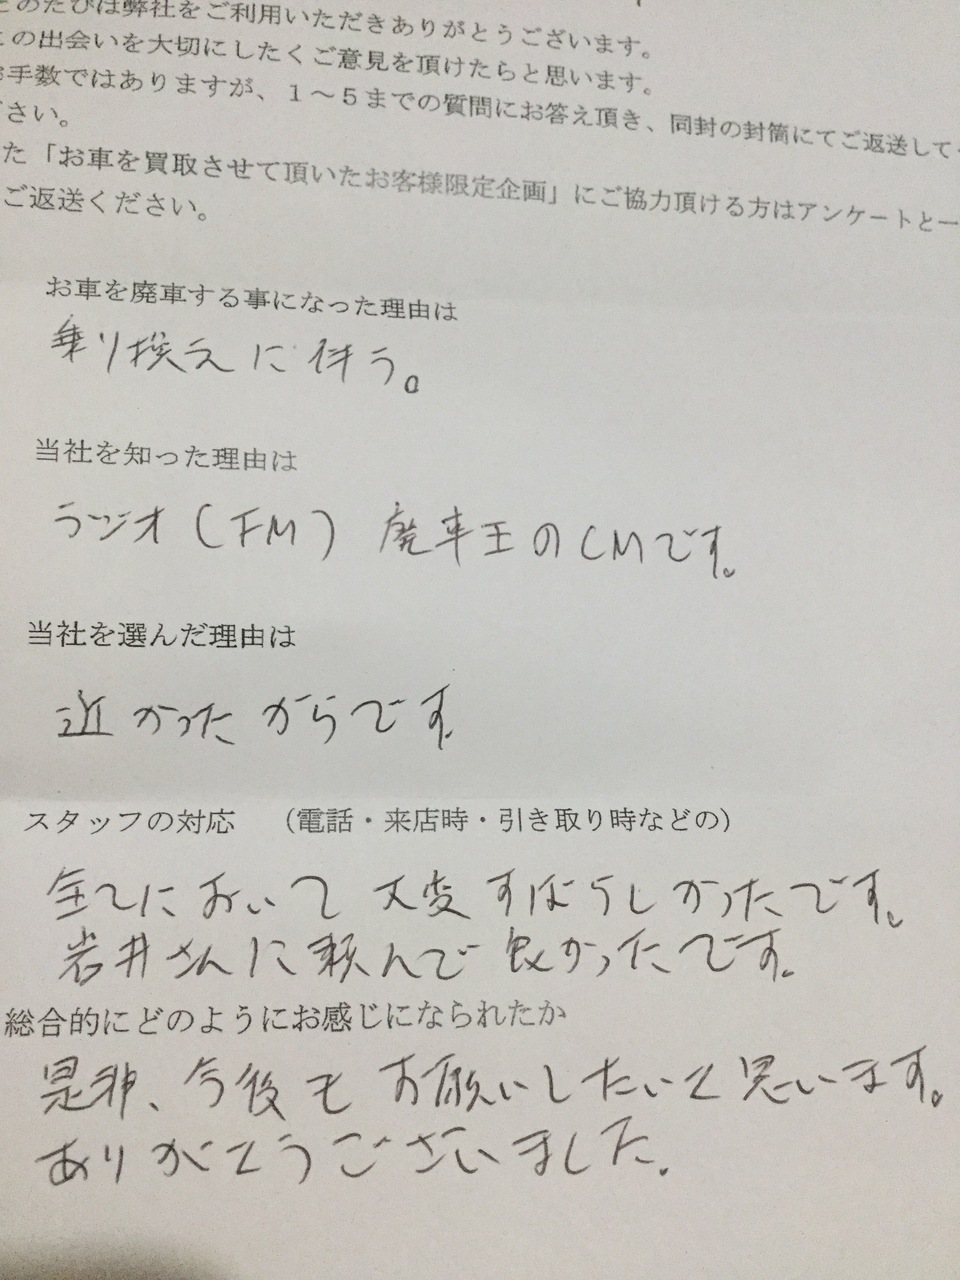 このたびは弊社をご利用いただきありがとうございます。
この出会いを大切にしたくご意見を頂けたらと思います。
お手数ではありますが、１～５までの質問にお答え頂き、同封の封筒にてご返送して
ださい。
た「お車を買取させて頂いたお客様限定企画」にご協力頂ける方はアンケートと一
ご返送ください。
お車を廃車する事になった理由は
乗り換えに伴う。
当社を知った理由は
ラジオ(FM) 廃車王のCMです。
当社を選んだ理由は
近かったからです。
スタッフの対応　（電話・来店時・引き取り時などの）
全てにおいて大変すばらしかったです。
岩井さんに頼んで良かったです。
総合的にどのようにお感じになられたか
是非、今後もお願いしたいと思います。
ありがとうございました。